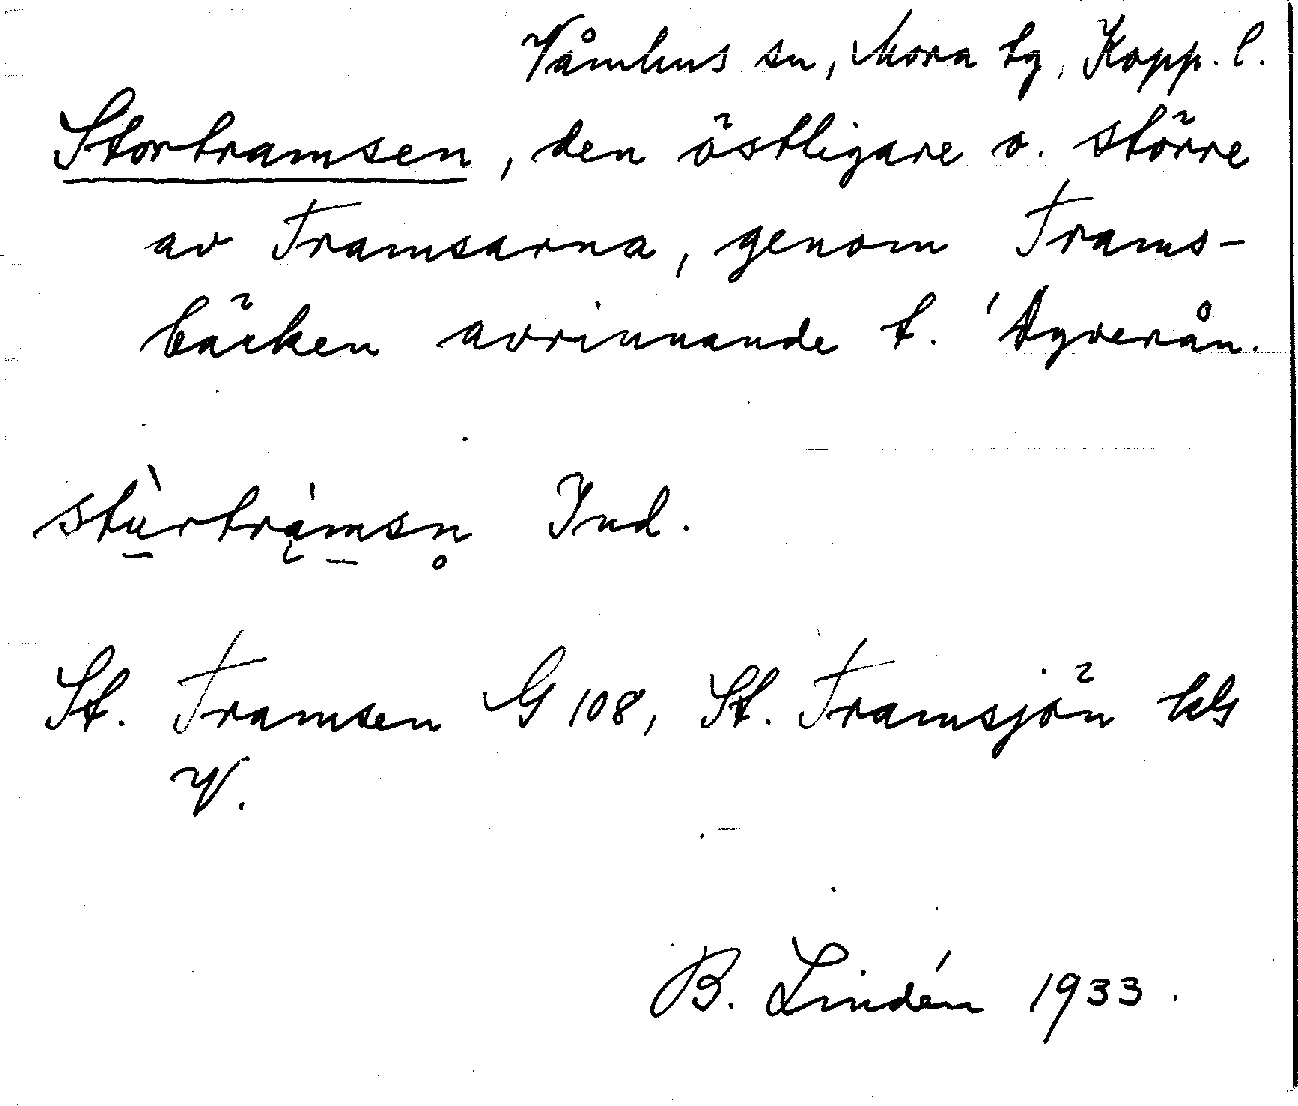 Våmhus sn, Mora tg, Kopp. l.
Stortramsen, den östligare o. större
av Tramsarna, genom Trams-
bäcken avrinnande t. 'Dyverån.
stu̠̇̀rtrà̜m̠sn̥ Ind.
St. Tramsen G 108, St. Tramsjön
V.
B. Lindén 1933.